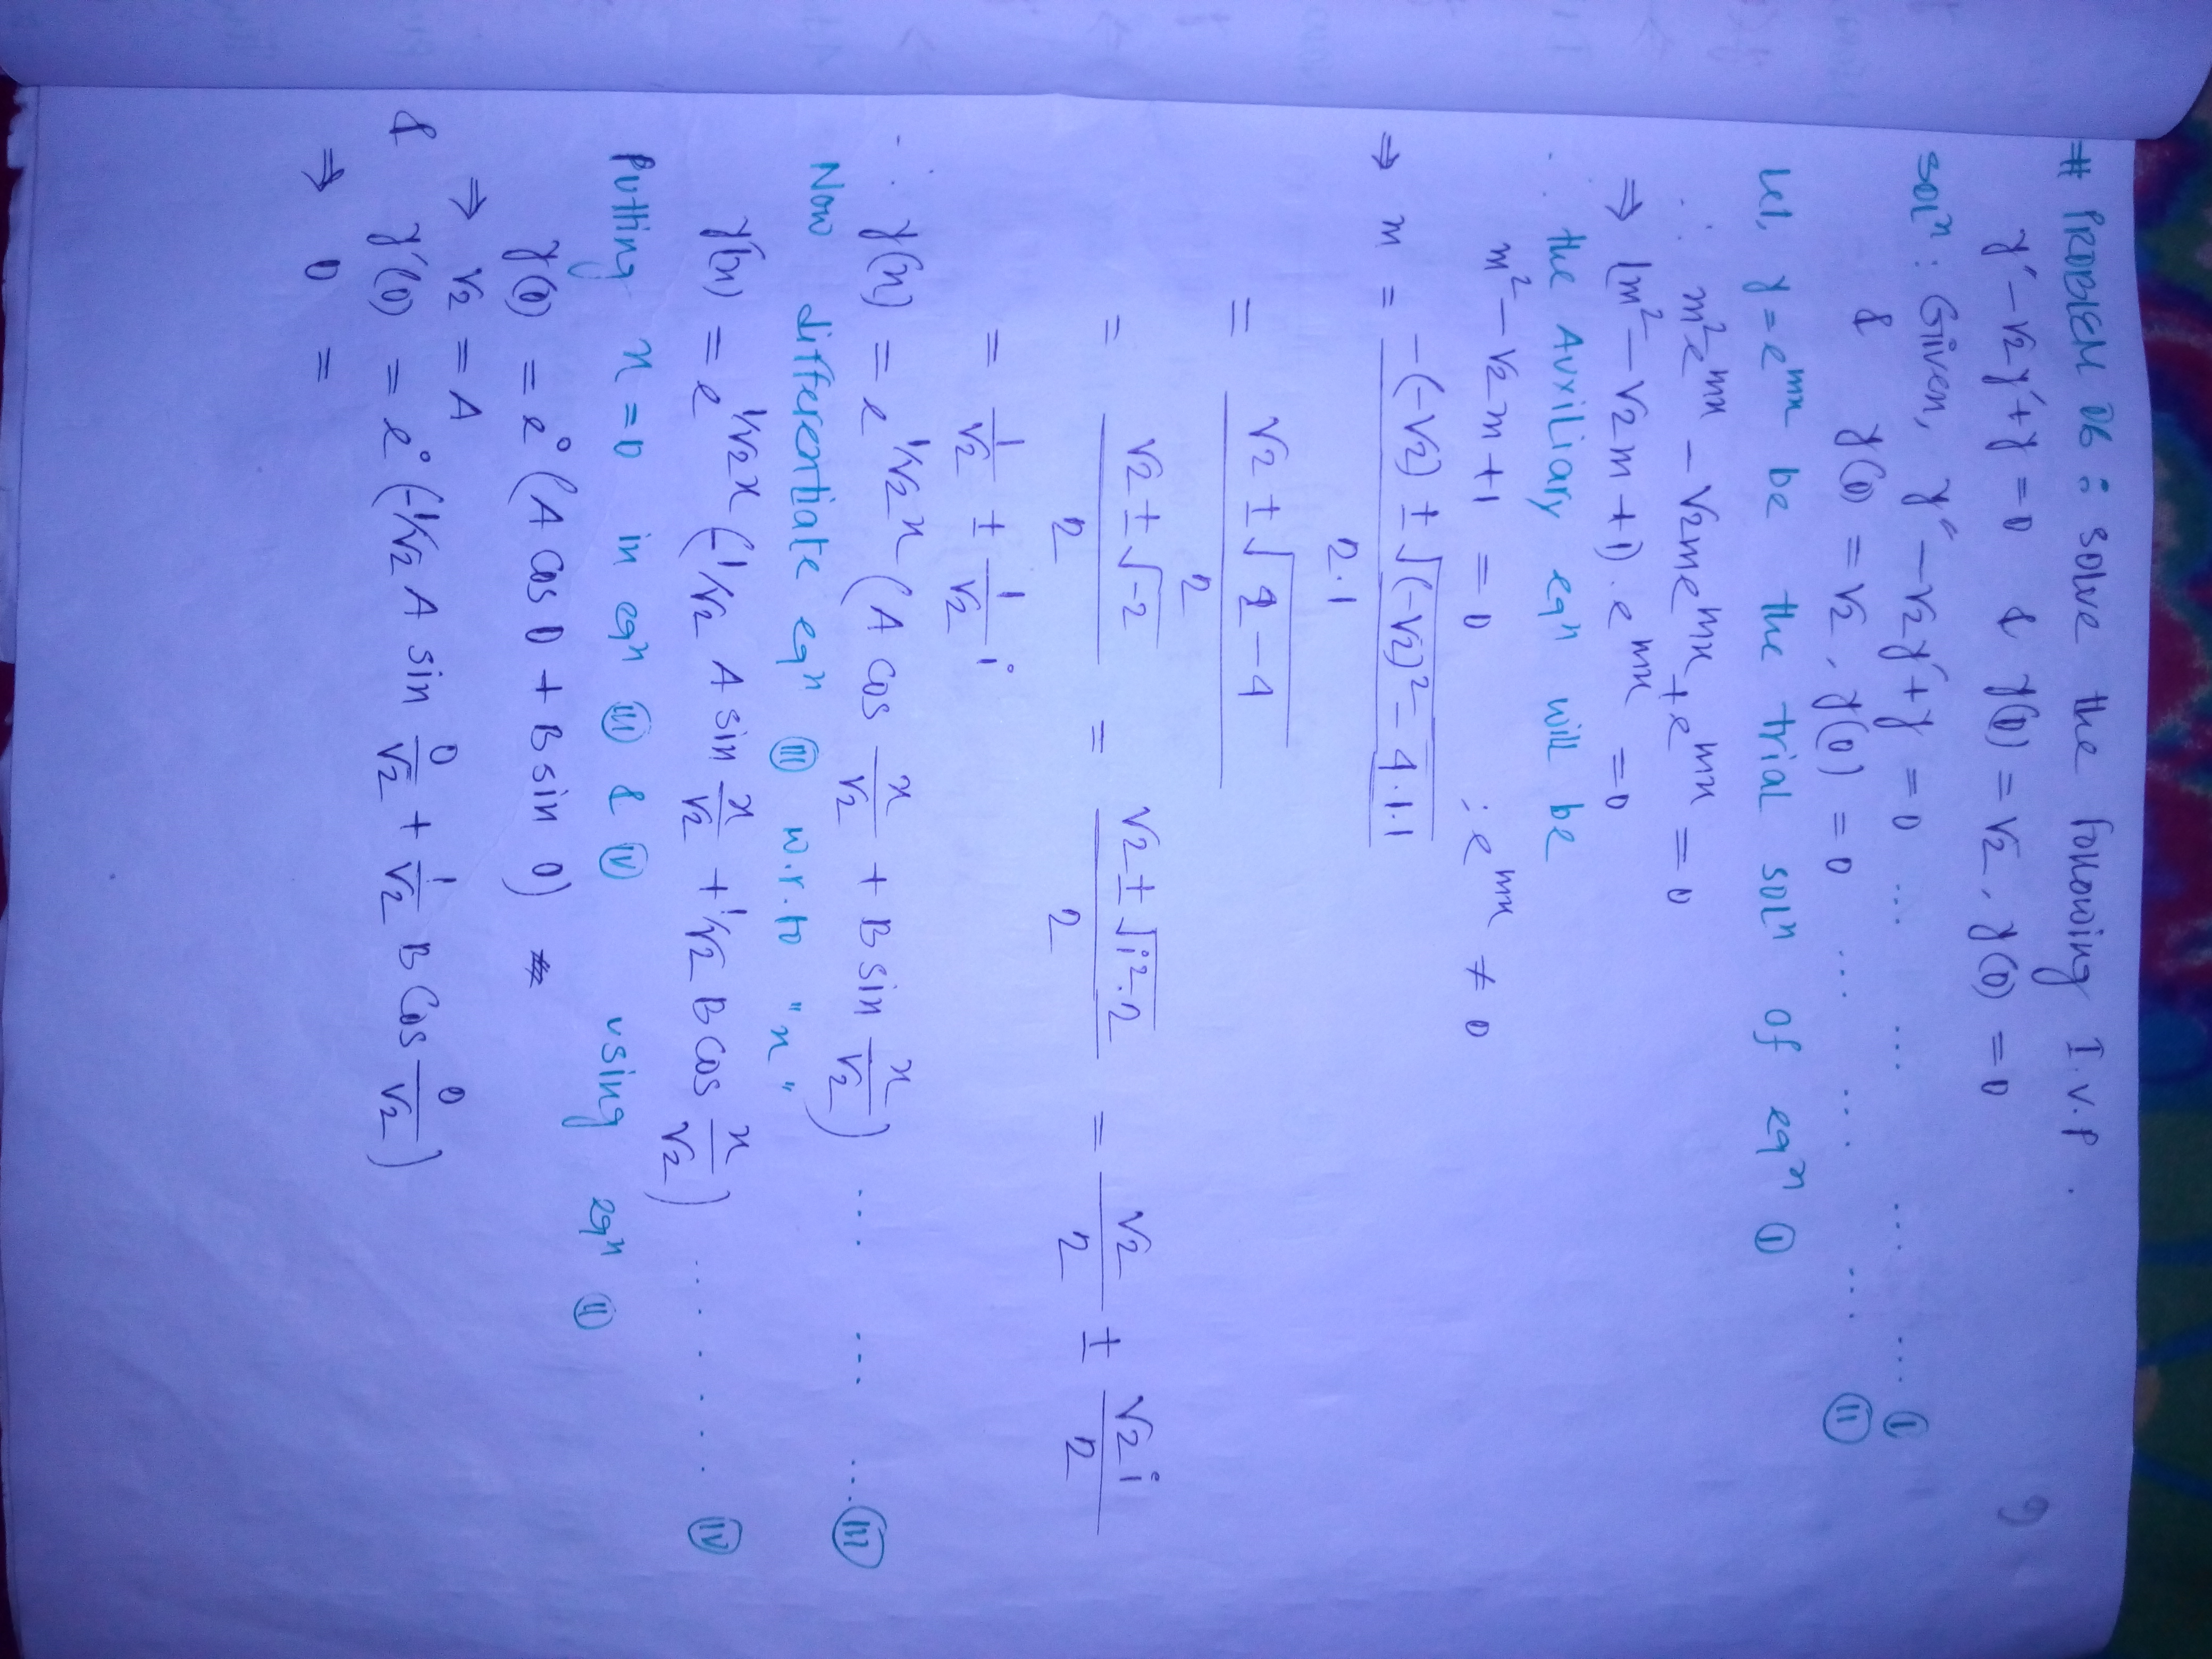 # PROBLEM 06 : solve the following I.V.P.
y″ - √2y′ + y = 0 & y(0) = √2, y′(0) = 0
9
solⁿ : Given, y″ - √2y′ + y = 0 ... ... ... ... (I)
& y(0) = √2, y′(0) = 0 ... ... ... (II)
Let, y = e^mx be the trial solⁿ of eqⁿ (I)
∴ m²e^mx - √2me^mx + e^mx = 0
⇒ (m² - √2m + 1).e^mx = 0
∴ the Auxiliary eqⁿ will be
m² - √2m + 1 = 0 ; e^mx ≠ 0
⇒ m = (-(-√2) ± √((-√2)² - 4.1.1)) / 2.1
= (√2 ± √(2 - 4)) / 2
= (√2 ± √-2) / 2 = (√2 ± √(i².2)) / 2 = √2/2 ± √2i/2
= 1/√2 ± 1/√2 i
∴ y(x) = e^(1/√2x) (A cos x/√2 + B sin x/√2) ... ... ... (III)
Now differentiate eqⁿ (III) w.r.to "x"
y′(x) = e^(1/√2x) (-1/√2 A sin x/√2 + 1/√2 B cos x/√2) ... . . . . (IV)
Putting x = 0 in eqⁿ (III) & (IV) using eqⁿ (II)
y(0) = e⁰ (A cos 0 + B sin 0)
⇒ √2 = A
& y′(0) = e⁰ (-1/√2 A sin 0/√2 + 1/√2 B cos 0/√2)
⇒ 0 =